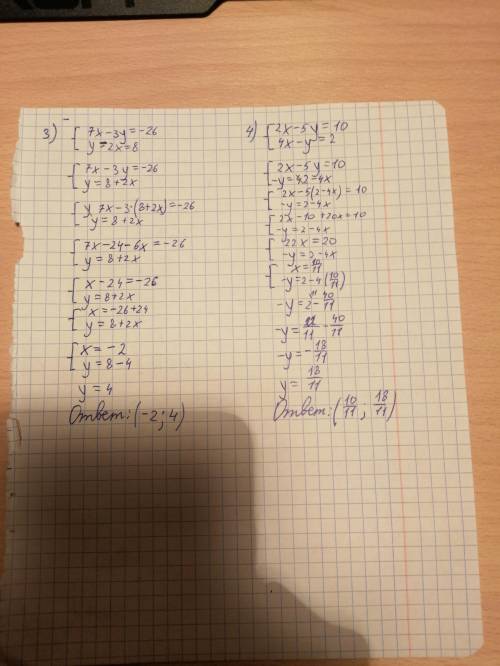 3) { 7x-3y=-26
{ y-2x=8
{ 7x-3y=-26
{ y=8+2x
{ 7x-3·(8+2x)=-26
y=8+2x
{ 7x-24-6x=-26
{ y=8+2x
{ x-24=-26
{ y=8+2x
{ x=-26+24
{ y=8+2x
{ x=-2
{ y=8-4
y=4
Ответ: (-2; 4)
4) { 2x-5y=10
{ 4x-y=2
{ 2x-5y=10
{ -y=2-4x
{ 2x-5(2-4x)=10
{ -y=2-4x
{ 2x-10+20x=10
{ -y=2-4x
{ 22x=20
{ -y=2-4x
{ x=10/11
{ -y=2-4(10/11)
-y=2-40/11
-y=22/11-40/11
-y=-18/11
y=18/11
Ответ: (10/11; 18/11)